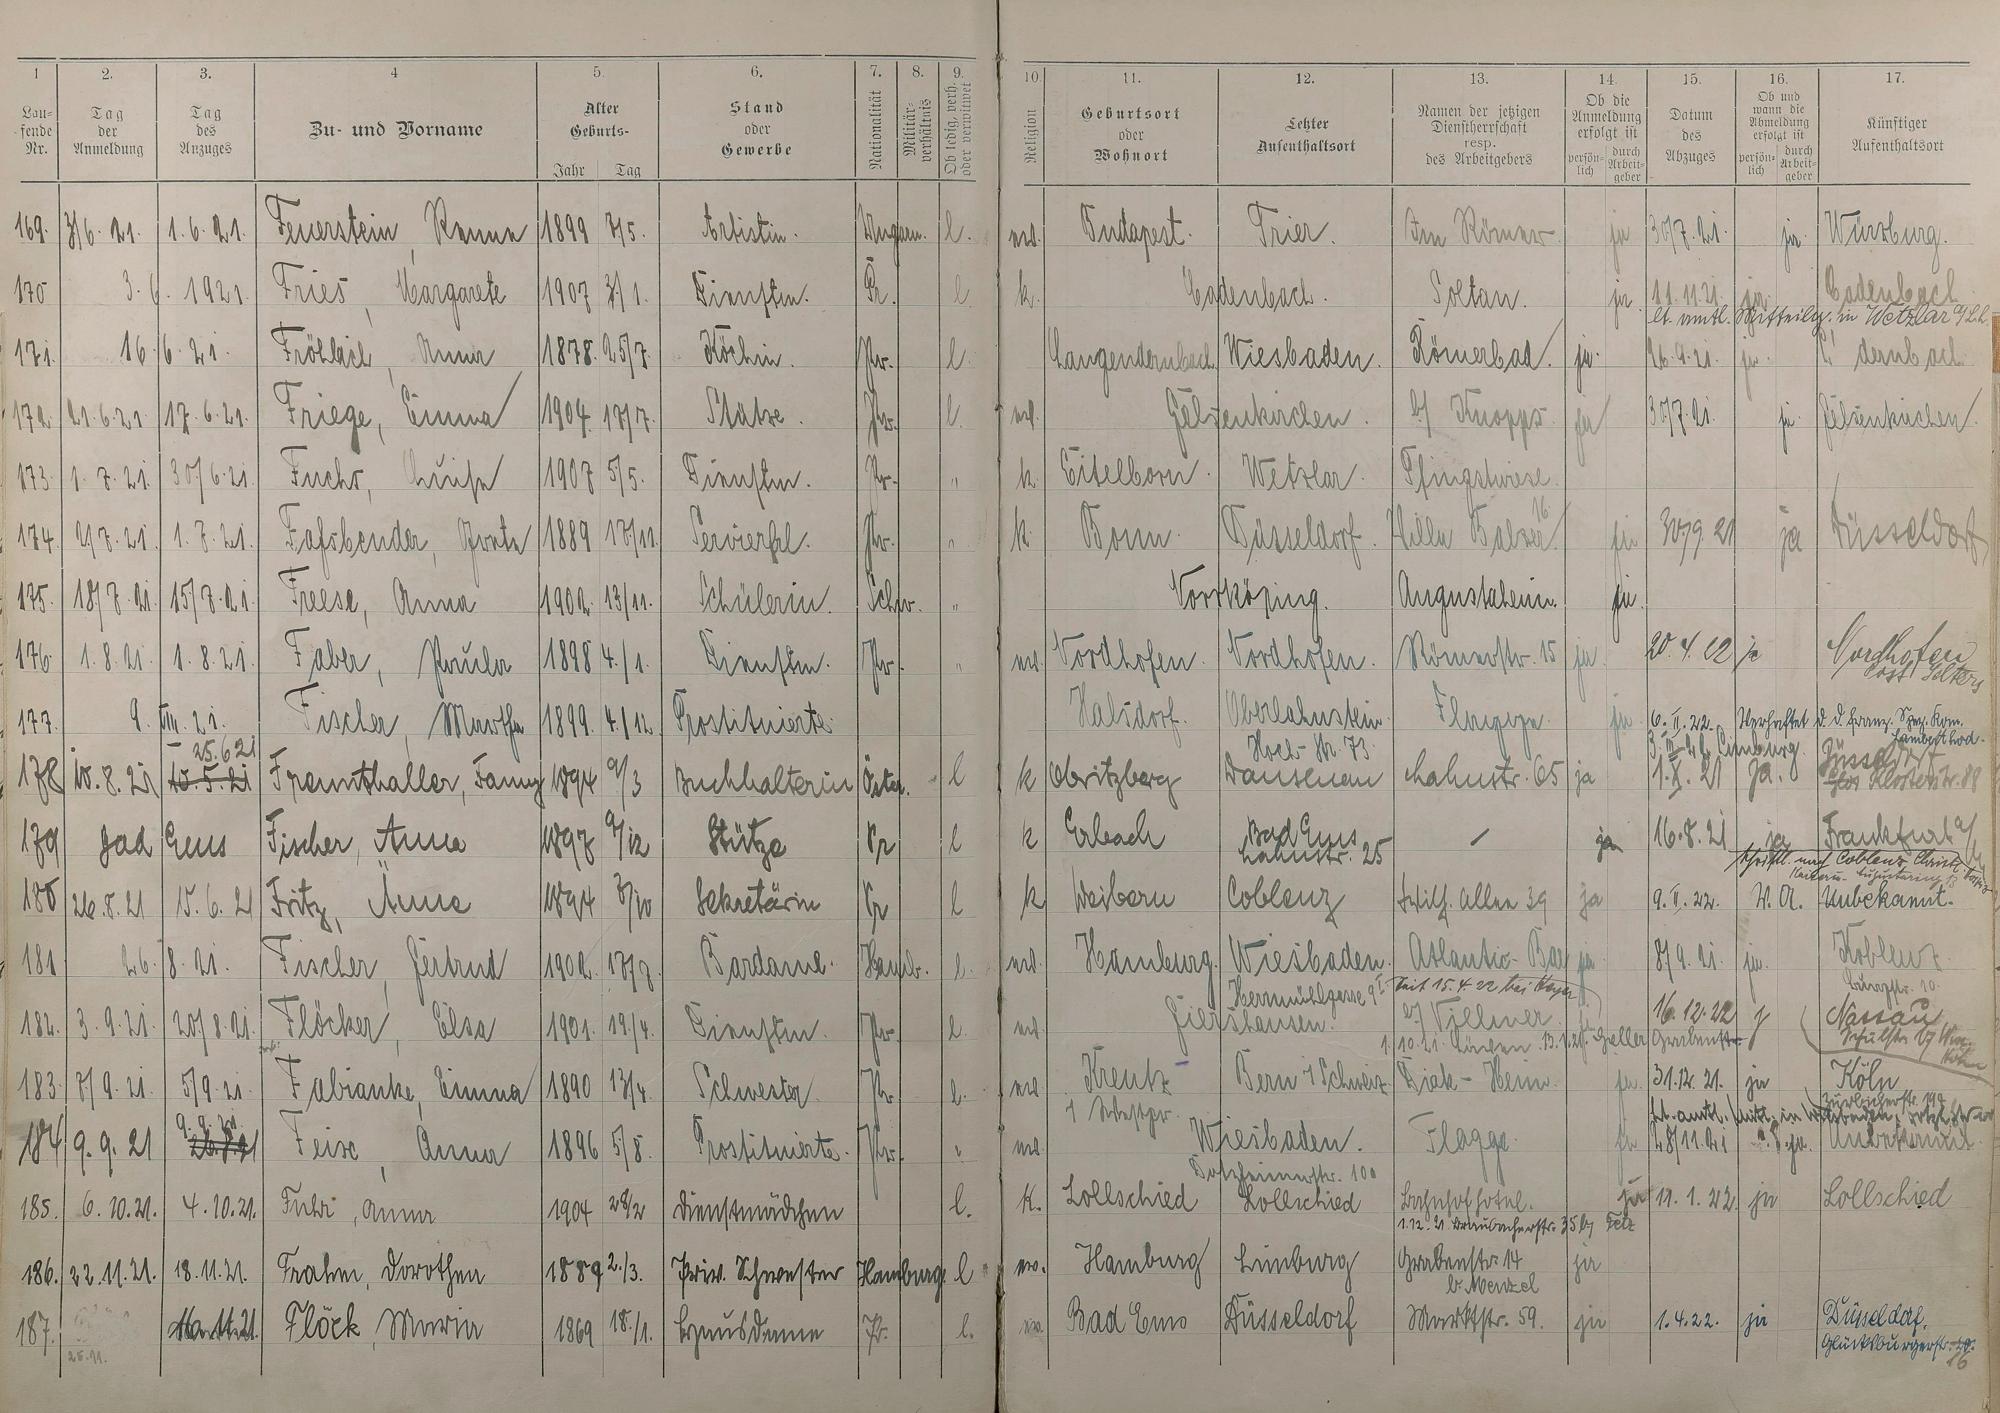 1 2. 3. 4 5. 6. 7. 8. 9. 10. 11. 12. 13. 14. 15. 16. 17.
Lau-fende Nr. Tag der Anmeldung Tag des Anzuges Zu- und Vorname Alter Geburts- Jahr Tag Stand oder Gewerbe Nationalität Militär-verhältnis Ob ledig, verh. oder verwitwet Religion Geburtsort oder Wohnort Letzter Aufenthaltsort Namen der jetzigen Dienstherrschaft resp. des Arbeitgebers Ob die Anmeldung erfolgt ist persön-lich durch Arbeit-geber Datum des Abzuges Ob und wann die Abmeldung erfolgt ist persön-lich durch Arbeit-geber Künftiger Aufenthaltsort
169. 3/6. 21. 1. 6. 21. Feuerstein, 1899 Artistin. Ungarn. l. Budapest. Trier. Im Römer ja 30/7. 21. ja Würzburg.
170 3. 6. 1921. Fries, Margarete 1907 Dienstm. Pr. l k. Cadenbach. Soltan. ja 11.11.21. ja Cadenbach
lt. amtl. Mitteilg. in Wetzlar a/Lh.
171. 16. 6. 21. Anna 1878. 25/7. Köchin. Pr. l Langendernbach Wiesbaden. Römerbad ja. 26.9.21. ja. dernbach
172. 21.6.21 17.6.21. Friege, Emma 1904. 17/7. Stütze. Pr. l. Gelsenkirchen. b/ Knopps ja 30/7. 21. ja. Gelsenkirchen.
173. 1. 7. 21. 30/6. 21. Fuchs, Luise 1907 5/5. Dienstm. Pr. " k. Eitelborn. Wetzlar. Pfingstwiese
16.
174. 2/7. 21. 1. 7. 21. Faßbender, Grete 1889 17/11. Servierfrl. Pr. " k. Bonn. Düsseldorf. Villa Balzer ja 30/9 21 ja Düsseldorf
175. 18/7. 21. 15/7. 21. Freese, Anna 1902. 13/11. Schülerin. Schw. " Norrköping. Augustaheim. ja.
176. 1. 8. 21. 1. 8. 21. Faber, Paula 1898 4. /1. Dienstm. Pr. " Nordhofen. Nordhofen. Römerstr. 15 ja 20. 4. 22 ja Nordhofen
Post Selters
177. 9. VIII. 21. Fischer, Martha 1899. 4/12. Prostituierte Halsdorf. Oberlahnstein. ja 6. II. 22. Verhaftet d. d. franz. Spez. Kom.
25.6.21 Hoch-Str. 73. Limburg.
178 10. 8. 21 10. 5. 21 Fremthaller, Fanny 1894 9/3 Buchhalterin Öster. l k Obritzberg Dausenau Lahnstr. 65 ja 1. X. 21 ja. Düsseldorf Klosterstr. 88
179 Bad Ems Fischer, Anna 1897 9/12 Stütze Pr l k Erbach Bad Ems Lahnstr. 25 / ja 16.8.21 ja Frankfurt a/
schriftl. nach Coblenz
180 26.8.21 15. 6. 21 Fritz, Änne 1894 3/10 Sekretärin Pr l k Weibern Coblenz Wilh. Allee 39 ja 9. II. 22. V. A. Unbekannt.
181 26. 8. 21. Fischer, Gertrud 1902. 17/7. Bardame. Hamb. l. Hamburg. Wiesbaden. Atlantic-Bar ja 8/9. 21. ja. Koblenz
Herrnmühlgasse 9 seit 15. 4. 22 bei
182. 3. 9. 21. 20/8. 21. Flöcker, Elsa 1901. 19./4. Dienstm. Pr. l. b/ Vollmer 16. 12. 22 Nassau
Geller Grabenstr.
183. 7/9. 21. 5/9. 21. Fabianke, Emma 1890 13/4. Schwester. Pr l. Kreutz Bern i/Schweiz Diak-Heim. ja. 31.12. 21. ja Köln
9. 9. 21. Westpr.
184 9. 9. 21 Feise, Anna 1896 5/8. Prostituierte. Pr. " Wiesbaden. Flagge ja 28/11. 21 ja. Unbekannt
Dotzheimerstr. 100
185. 6. 10. 21. 4. 10. 21. Fuhr, Anna 1904 28/2 Dienstmädchen l. k. Lollschied Lollschied Bahnhofhotel. ja 19. 1. 22. ja Lollschied
1.12. 21 Braubacherstr. 35 by Felz
186. 22. 11. 21. 18. 11. 21. Frahm, Dorothea 1889 2./3. Priv. Schwester Hamburg. l Hamburg Limburg Grabenstr. 14 ja
b. Menzel
187. Flöck, Maria 1869 18./1. Hausdame Pr. l. Bad Ems Düsseldorf Marktstr. 59. ja 1. 4. 22. ja Düsseldorf,
25. 11. Glücksburgerstr. 16